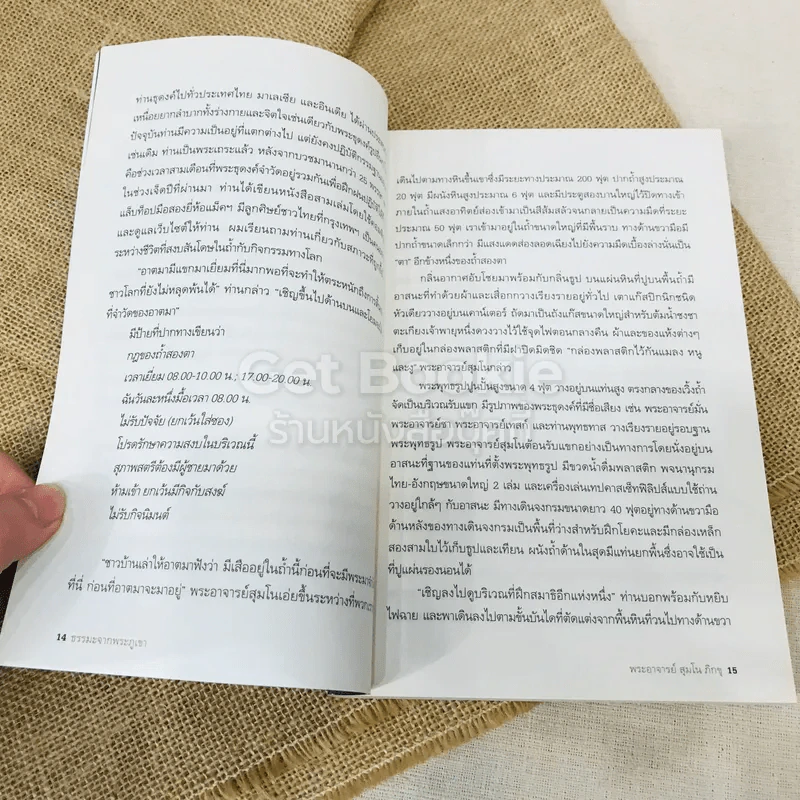 ท่านธุดงค์ไปทั่วประเทศไทย มาเลเซีย และอินเดีย ได้ผ่าน
เหนื่อยยากลำบากทั้งร่างกายและจิตใจเช่นเดียวกับพระธุดงค์
ปัจจุบันท่านมีความเป็นอยู่ที่แตกต่างไป แต่ยังคงปฏิบัติกรรมฐาน
เช่นเดิม ท่านเป็นพระเถระแล้ว หลังจากบวชมานานกว่า 25 พรรษา
คือช่วงเวลาสามเดือนที่พระธุดงค์จำวัดอยู่รวมกันเพื่อฝึกฝน
ในช่วงเจ็ดปีที่ผ่านมา ท่านได้เขียนหนังสือสามเล่มโดยใช้
แล็บท็อปมือสองยี่ห้อแม็คฯ มีลูกศิษย์ชาวไทยที่กรุงเทพฯ เป็น
และดูแลเว็บไซต์ให้ท่าน ผมเรียนถามท่านเกี่ยวกับสภาวะ
ระหว่างชีวิตที่สงบสันโดษในถ้ำกับกิจกรรมทางโลก
"อาตมามีแขกมาเยี่ยมที่นี่มากพอที่จะทำให้ตระหนักถึง
ชาวโลกที่ยังไม่หลุดพ้นได้" ท่านกล่าว "เชิญขึ้นไปด้านบนและ
ที่จำวัดของอาตมา"
มีป้ายที่ปากทางเขียนว่า
กฎของถ้ำสองตา
เวลาเยี่ยม 08.00-10.00 น.; 17.00-20.00 น.
ฉันวันละหนึ่งมื้อเวลา 08.00 น.
ไม่รับปัจจัย (ยกเว้นใส่ซอง)
โปรดรักษาความสงบในบริเวณนี้
สุภาพสตรีต้องมีผู้ชายมาด้วย
ห้ามเข้า ยกเว้นมีกิจกับสงฆ์
ไม่รับกิจนิมนต์
"ชาวบ้านเล่าให้อาตมาฟังว่า มีเสืออยู่ในถ้ำนี้ก่อนที่จะมีพระมา
ที่นี่ ก่อนที่อาตมาจะมาอยู่" พระอาจารย์สุมโนเอ่ยขึ้นระหว่างที่
14 ธรรมะจากพระภูเขา
เดินไปตามทางหินขึ้นเขาซึ่งมีระยะทางประมาณ 200 ฟุต ปากถ้ำสูงประมาณ
20 ฟุต มีผนังหินสูงประมาณ 6 ฟุต และมีประตูสองบานใหญ่ไว้ปิดทางเข้า
ภายในถ้ำแสงอาทิตย์ส่องเข้ามาเป็นสีส้มสลัวจนกลายเป็นความมืดที่ระยะ
ประมาณ 50 ฟุต เราเข้ามาอยู่ในถ้ำขนาดใหญ่ที่มีพื้นราบ ทางด้านขวามือมี
ปากถ้ำขนาดเล็กกว่า มีแสงแดดส่องลอดเฉียงไปยังความมืดเบื้องล่างนั่นเป็น
"ตา" อีกข้างหนึ่งของถ้ำสองตา
กลิ่นอากาศอับโชยมาพร้อมกับกลิ่นธูป บนแผ่นหินที่ปูบนพื้นถ้ำมี
อาสนะที่ทำด้วยผ้าและเสื่อกกวางเรียงรายอยู่ทั่วไป เตาแก๊สปิกนิกชนิด
หัวเดียววางอยู่บนเคาน์เตอร์ ถัดมาเป็นถังแก๊สขนาดใหญ่สำหรับต้มน้ำชงชา
ตะเกียงเจ้าพายุหนึ่งดวงวางไว้ใช้จุดไฟตอนกลางคืน ผ้าและของแห้งต่างๆ
เก็บอยู่ในกล่องพลาสติกที่มีฝาปิดมิดชิด "กล่องพลาสติกไว้กันแมลง หนู
และงู" พระอาจารย์สุมโนกล่าว
พระพุทธรูปปูนปั้นสูงขนาด 4 ฟุต วางอยู่บนแท่นสูง ตรงกลางของเวิ้งถ้ำ
จัดเป็นบริเวณรับแขก มีรูปภาพของพระธุดงค์ที่มีชื่อเสียง เช่น พระอาจารย์มั่น
พระอาจารย์ชา พระอาจารย์เทสก์ และท่านพุทธทาส วางเรียงรายอยู่รอบฐาน
พระพุทธรูป พระอาจารย์สุมโนต้อนรับแขกอย่างเป็นทางการโดยนั่งอยู่บน
อาสนะที่ฐานของแท่นที่ตั้งพระพุทธรูป มีขวดน้ำดื่มพลาสติก พจนานุกรม
ไทย-อังกฤษขนาดใหญ่ 2 เล่ม และเครื่องเล่นเทปคาสเซ็ทฟิลิปส์แบบใช้ถ่าน
วางอยู่ใกล้ๆ กับอาสนะ มีทางเดินจงกรมขนาดยาว 40 ฟุตอยู่ทางด้านขวามือ
ด้านหลังของทางเดินจงกรมเป็นพื้นที่ว่างสำหรับฝึกโยคะและมีกล่องเหล็ก
สองสามใบไว้เก็บธูปและเทียน ผนังถ้ำด้านในสุดมีแท่นยกพื้นซึ่งอาจใช้เป็น
ที่ปูแผ่นรองนอนได้
"เชิญลงไปดูบริเวณที่ฝึกสมาธิอีกแห่งหนึ่ง" ท่านบอกพร้อมกับหยิบ
ไฟฉาย และพาเดินลงไปตามขั้นบันไดที่ตัดแต่งจากพื้นหินที่วนไปทางด้านขวา
พระอาจารย์ สุมโน ภิกขุ 15
Get Bookie
ร้านหนังสือมือสอง